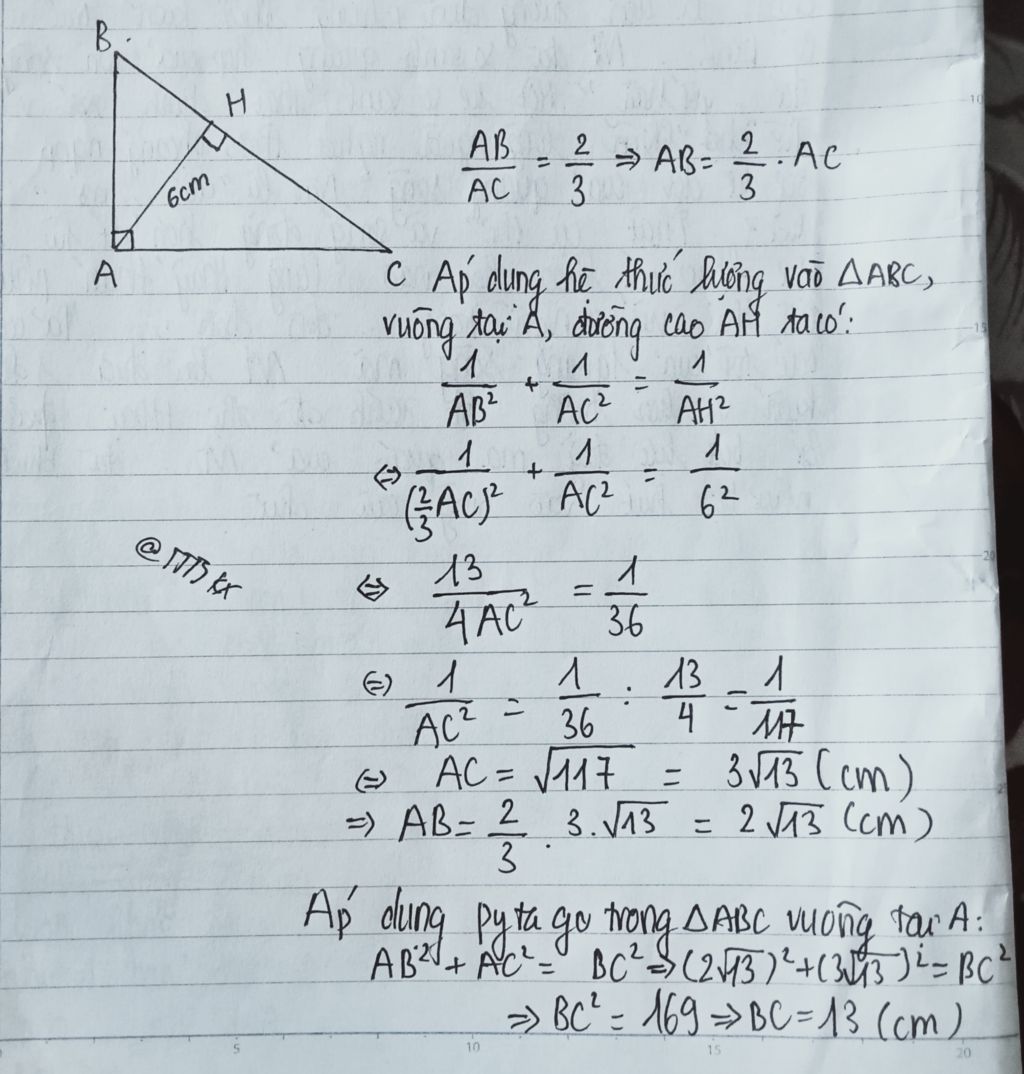 B
H
6cm
A
C
AB/AC = 2/3 ⇒ AB = 2/3 · AC
Áp dụng hệ thức lượng vào ΔABC,
vuông tại A, đường cao AH ta có:
1/AB² + 1/AC² = 1/AH²
⇔ 1/(2/3 AC)² + 1/AC² = 1/6²
⇔ 13/4AC² = 1/36
⇔ 1/AC² = 1/36 : 13/4 = 1/117
⇔ AC = √117 = 3√13 (cm)
⇒ AB = 2/3 . 3.√13 = 2√13 (cm)
Áp dụng pytago trong ΔABC vuông tại A:
AB² + AC² = BC² ⇒ (2√13)² + (3√13)² = BC²
⇒ BC² = 169 ⇒ BC = 13 (cm)
5 10 15 20